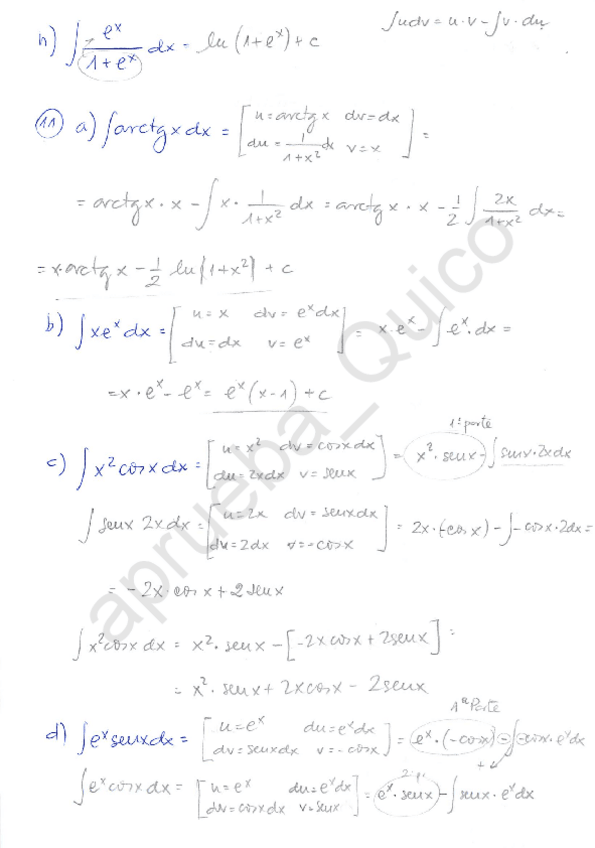 h) ∫ eˣ/(1+eˣ) dx = ln(1+eˣ)+c
∫udv = u·v - ∫v·du
11) a) ∫arctg x dx = [u = arctg x dv = dx
du = 1/(1+x²) dx v = x] =
= arctg x · x - ∫x · 1/(1+x²) dx = arctg x · x - 1/2 ∫ 2x/(1+x²) dx =
= x·arctg x - 1/2 ln|1+x²| + c
b) ∫xeˣdx = [u = x dv = eˣdx
du = dx v = eˣ] = x·eˣ - ∫eˣ·dx =
= x·eˣ - eˣ = eˣ(x-1)+c
1ª parte
c) ∫x²cosx dx = [u = x² dv = cosxdx
du = 2xdx v = senx] = x²·senx - ∫senx·2xdx
∫senx 2xdx = [u = 2x dv = senxdx
du = 2dx v = -cosx] = 2x·(-cosx) - ∫-cosx·2dx =
= -2x·cosx + 2senx
∫x²cosx dx = x²·senx - [-2xcosx + 2senx] =
= x²·senx + 2xcosx - 2senx
1ª Parte
d) ∫eˣsenxdx = [u = eˣ du = eˣdx
dv = senxdx v = -cosx] = eˣ·(-cosx) - ∫-cosx·eˣdx
+
∫eˣcosxdx = [u = eˣ du = eˣdx
dv = cosxdx v = senx] = eˣ·senx - ∫senx·eˣdx
aprueba_Quico